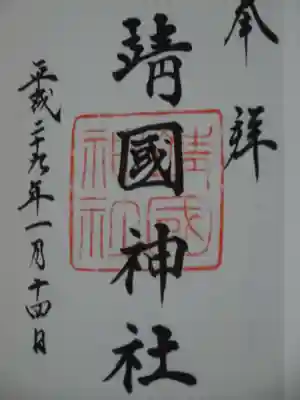 奉拝
靖國神社
平成二十九年一月十四日
靖國
神社